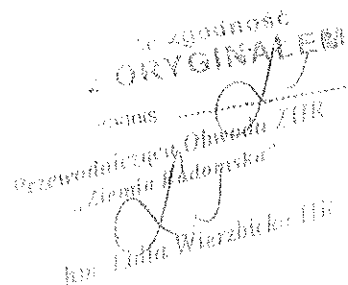 zgodność
ORYGINAŁEM
Przewodnicząca Obwodu ZHR
„Ziemia Radomska"
hm. Lidia Wierzbicka HR